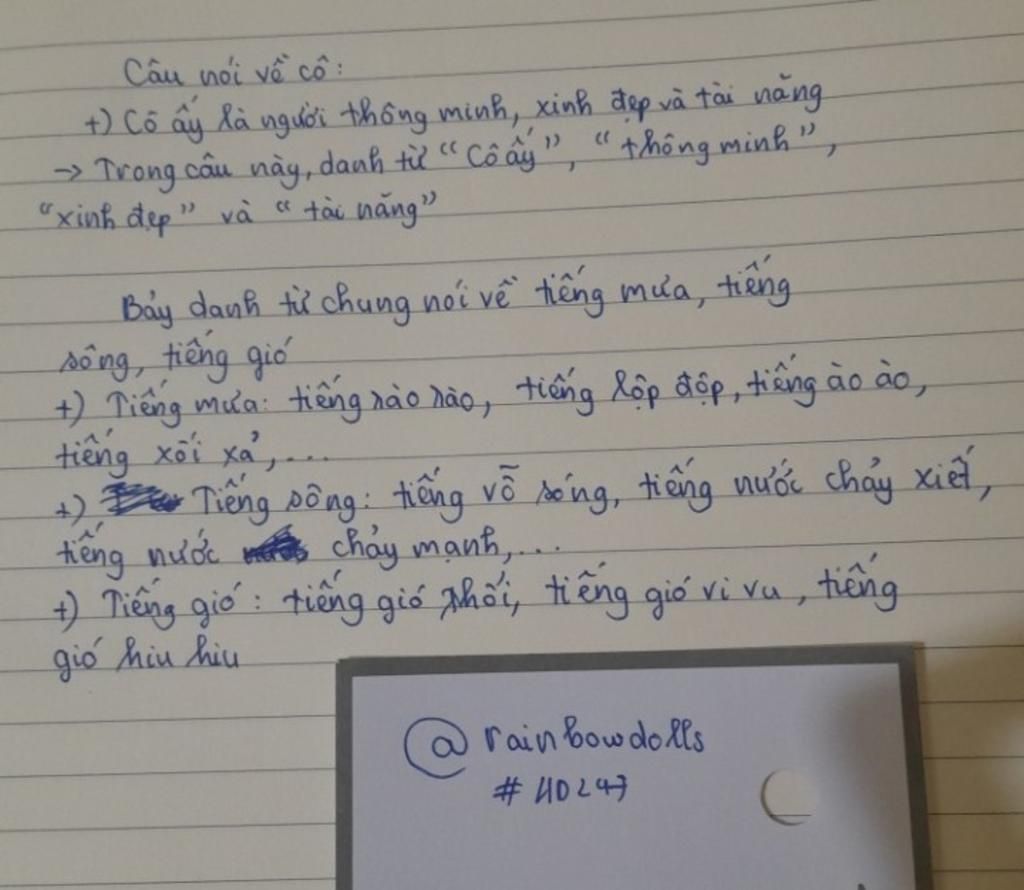 Câu nói về cô:
+) Cô ấy là người thông minh, xinh đẹp và tài năng
→ Trong câu này, danh từ "Cô ấy", "thông minh",
"xinh đẹp" và "tài năng"
Bảy danh từ chung nói về tiếng mưa, tiếng
sông, tiếng gió
+) Tiếng mưa: tiếng rào rào, tiếng lộp độp, tiếng ào ào,
tiếng xối xả,...
+) Tiếng sông: tiếng vỗ sóng, tiếng nước chảy xiết,
tiếng nước chảy mạnh,...
+) Tiếng gió: tiếng gió thổi, tiếng gió vi vu, tiếng
gió hiu hiu
@rainbowdolls